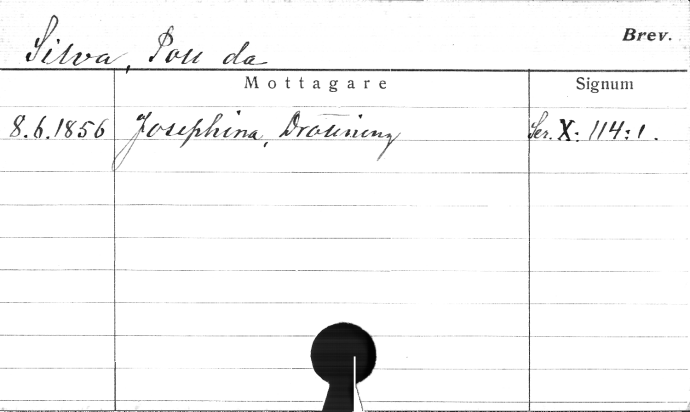 Silva, Pou da
Brev.
Mottagare
Signum
8.6.1856 Josephina, Drottning Ser. X: 114:1.